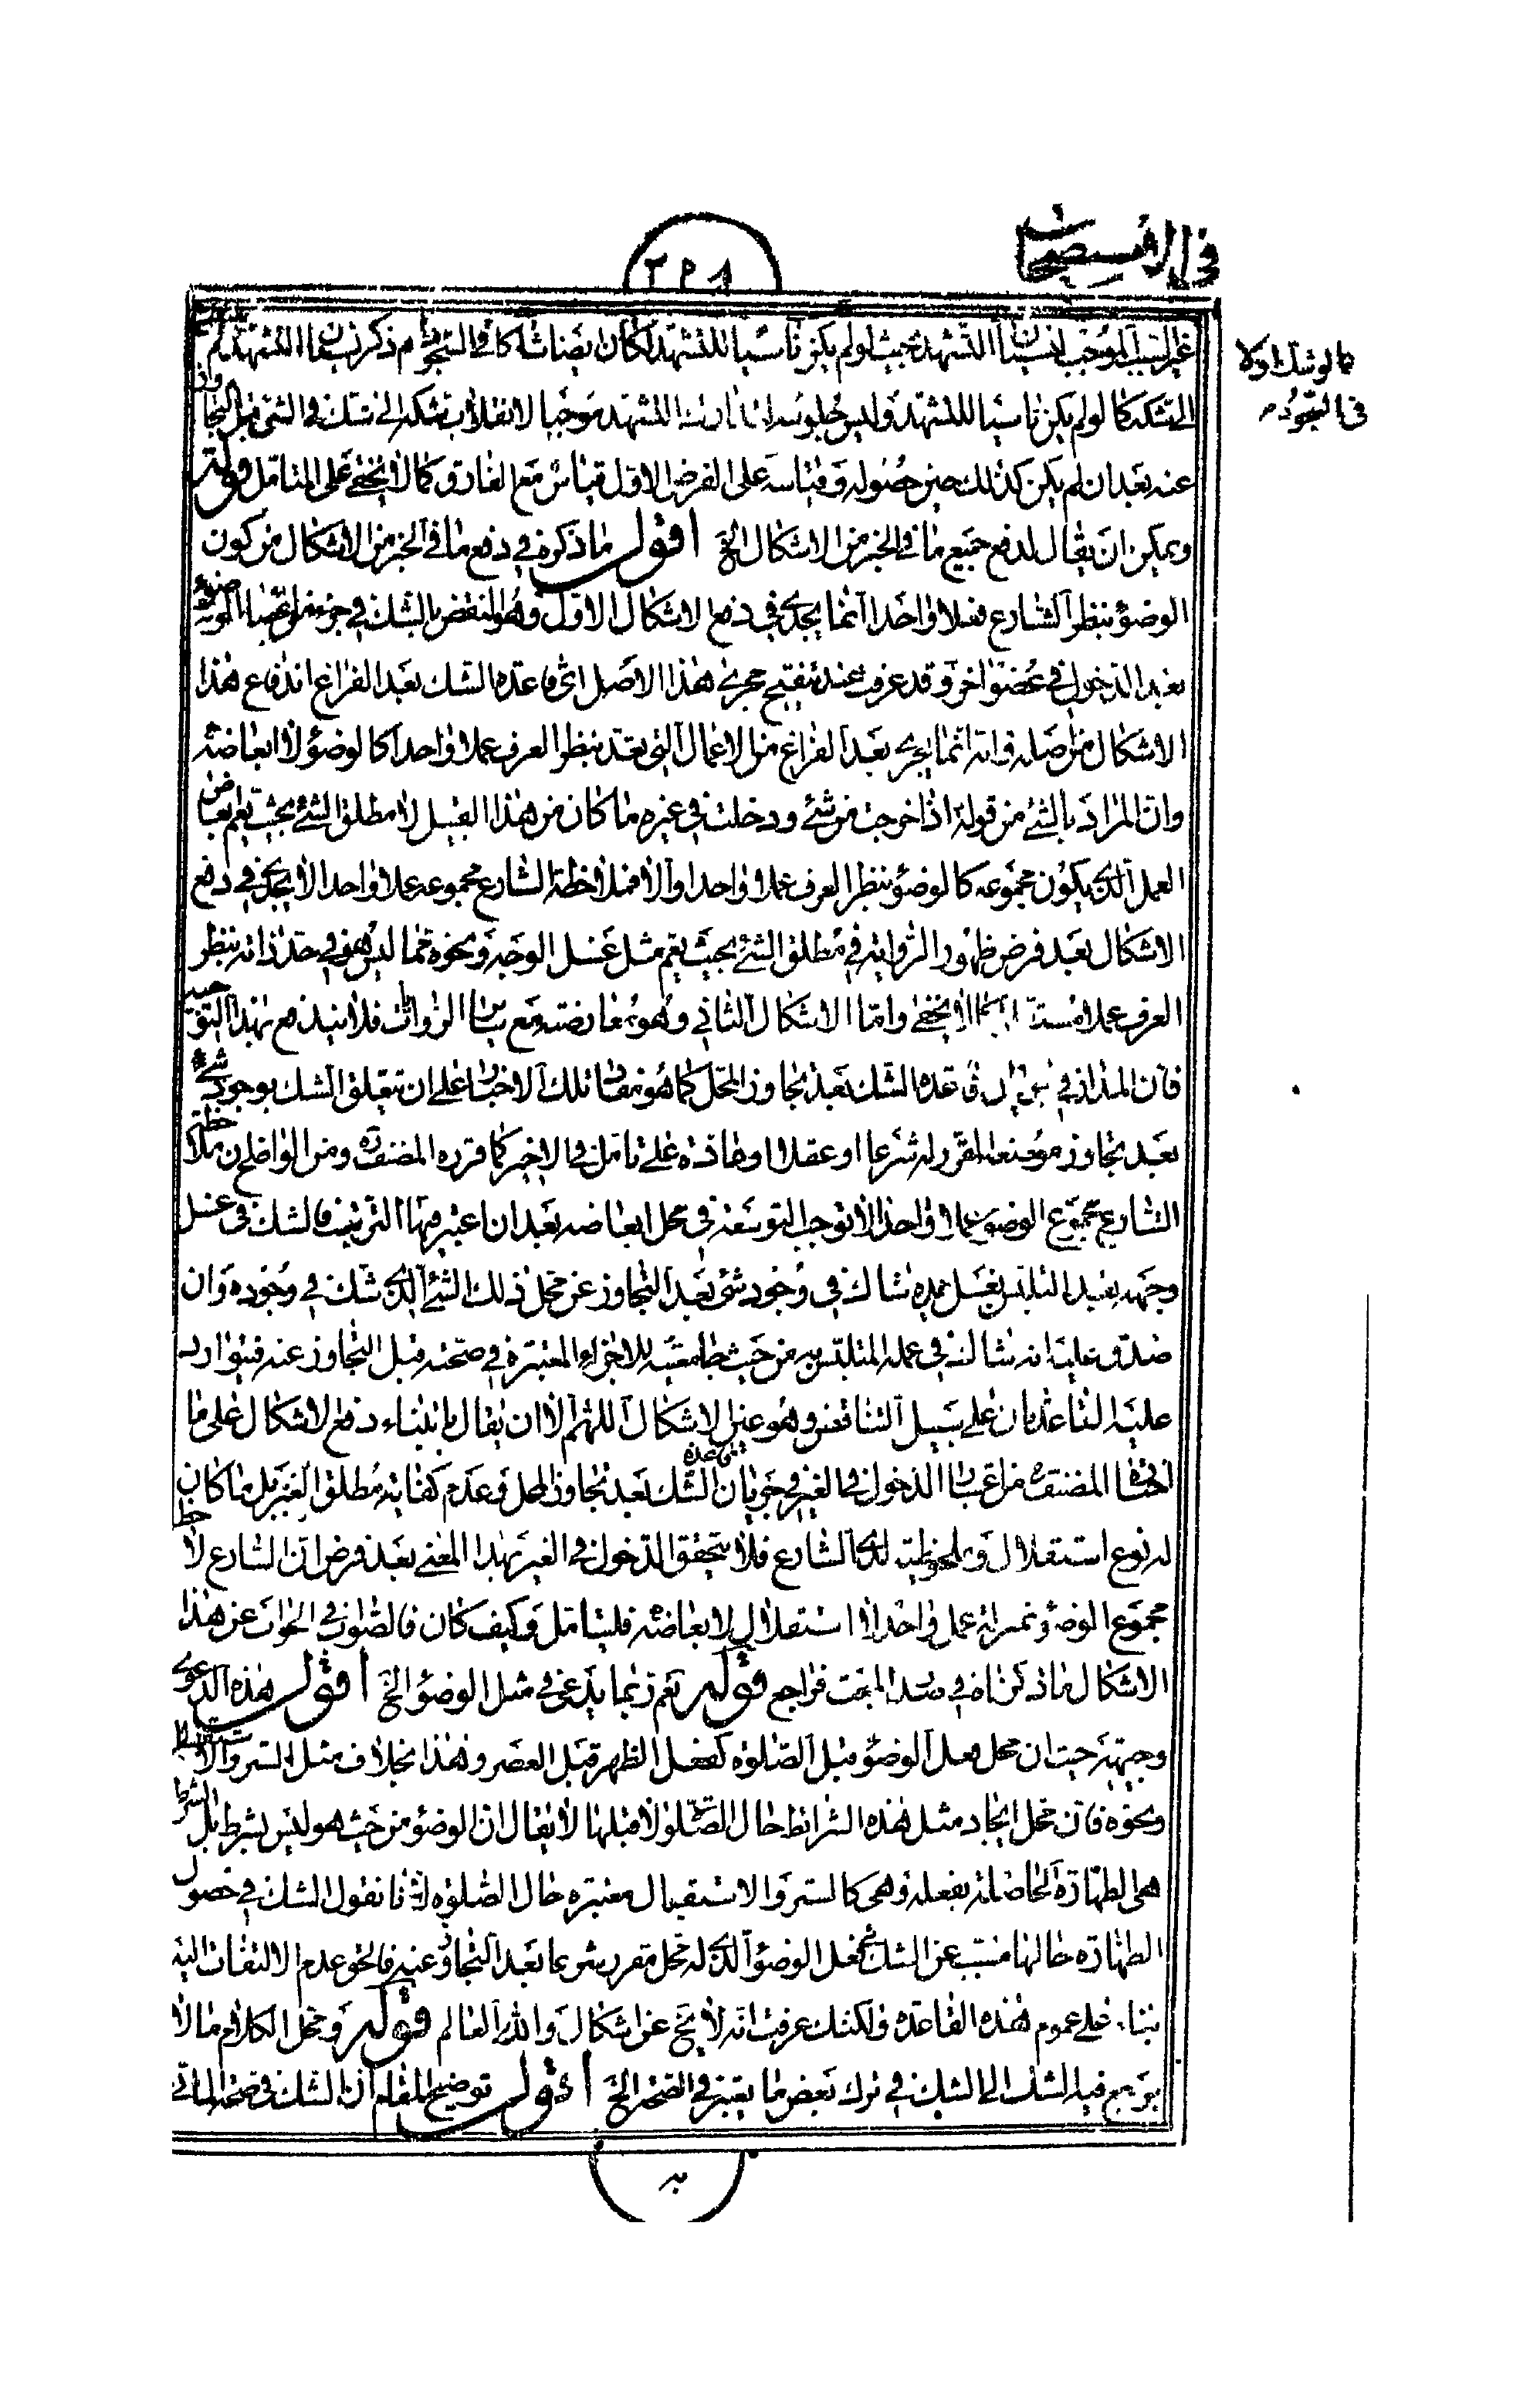 في الاستصحاب
٣٩٨
كما لو شك اولا
في السجود م
غير السبب الموجب لنسيان التشهد بحيث لو لم يكن ناسيا للتشهد لكان ايضا شاكا في السجود ثم ذكر نسيان التشهد لم
الى شكه كما لو لم يكن ناسيا للتشهد وليس جلوسه التشهد موجبا لانقلاب شكه الى شك في الشئ قبل التجاوز
عنه بعد ان لم يكن كذلك حين حصوله وقياسه على الفرض الاول قياس مع الفارق كما لا يخفى على المتامل قوله
ويمكن ان يقال لدفع جميع ما في الخبر من الاشكال الخ اقول ما ذكره في دفع ما في الخبر من الاشكال من كون
الوضوء بنظر الشارع فعلا واحدا انما يجدي في دفع الاشكال الاول وهو النقض بالشك في جزء من اعضاء الوضوء
بعد الدخول في عضو اخر وقد عرفت عند تنقيح مجرى هذا الاصل اي قاعدة الشك بعد الفراغ اندفاع هذا
الاشكال من اصله فانه انما يجري بعد الفراغ من الاعمال التي تعد بنظر العرف عملا واحدا كالوضوء لا ابعاضه
وان المراد بالشئ من قوله اذا خرجت من شئ ودخلت في غيره ما كان من هذا القبيل لا مطلق الشئ بحيث يعم ابعاض
العمل الذي يكون مجموعه كالوضوء بنظر العرف عملا واحدا والا فملاحظة الشارع مجموعه عملا واحدا لا يجدي في دفع
الاشكال بعد فرض ظهور الرواية في مطلق الشئ بحيث يعم مثل غسل الوجه ونحوه مما ليس هو في حد ذاته بنظر
العرف عملا مستقلا كما لا يخفى واما الاشكال الثاني وهو معارضته مع ساير الروايات فلا يندفع بهذا التوجيه
فان المدار في جريان قاعدة الشك بعد تجاوز المحل كما هو مفاد تلك الاخبار على ان يتعلق الشك بوجود شئ
بعد تجاوز موضعه المقرر له شرعا او عقلا او عادة على تامل في الاخير كما قرره المصنف ره ومن الواضح ان ملاحظة
الشارع مجموع الوضوء عملا واحدا لا توجب التوسعة في محل ابعاضه بعد ان اعتبر فيها الترتيب فالشك في غسل
وجهه بعد التلبس بغسل يده شاك في وجود شئ بعد التجاوز عن محل ذلك الشئ الذي شك في وجوده وان
صدق عليه انه شاك في عمله المتلبس به من حيث جامعيته للاجزاء المعتبرة في صحته قبل التجاوز عنه فيتوارد
عليه القاعدتان على سبيل التناقض وهو عين الاشكال اللهم الا ان يقال بابتناء دفع الاشكال على ما
اختاره المصنف ره من اعتبار الدخول في الغير في جريان قاعدة الشك بعد تجاوز المحل وعدم كفاية مطلق الغير بل ما كان
له نوع استقلال وملحوظية لدى الشارع فلا يتحقق الدخول في الغير بهذا المعنى بعد فرض ان الشارع لاحظ
مجموع الوضوء بمنزلة عمل واحد لا استقلال لابعاضه فليتامل وكيف كان فالصواب في الجواب عن هذا
الاشكال ما ذكرناه في صدر المبحث فراجع قوله نعم ربما يدعى في مثل الوضوء الخ اقول هذه الدعوى
وجيهة حيث ان محل فعل الوضوء قبل الصلوة كفعل الظهر قبل العصر وهذا بخلاف مثل الستر والاستقبال
ونحوه فان محل ايجاد مثل هذه الشرائط حال الصلوة لا قبلها لا يقال ان الوضوء من حيث هو ليس بشرط بل الشرط
هي الطهارة الحاصلة بفعله وهي كالستر والاستقبال معتبرة حال الصلوة لانا نقول الشك في حصول
الطهارة حالها مسبب عن الشك في فعل الوضوء الذي له محل مقرر شرعا بعد التجاوز عنه فالحق عدم الالتفات اليه
بناء على عموم هذه القاعدة ولكنك عرفت انه لا يخ عن اشكال والله العالم قوله ومحل الكلام ما لا
يرجع فيه الشك الى الشك في ترك بعض ما يعتبر في الصحة الخ اقول توضيح المقام ان الشك في صحة الماتي
به